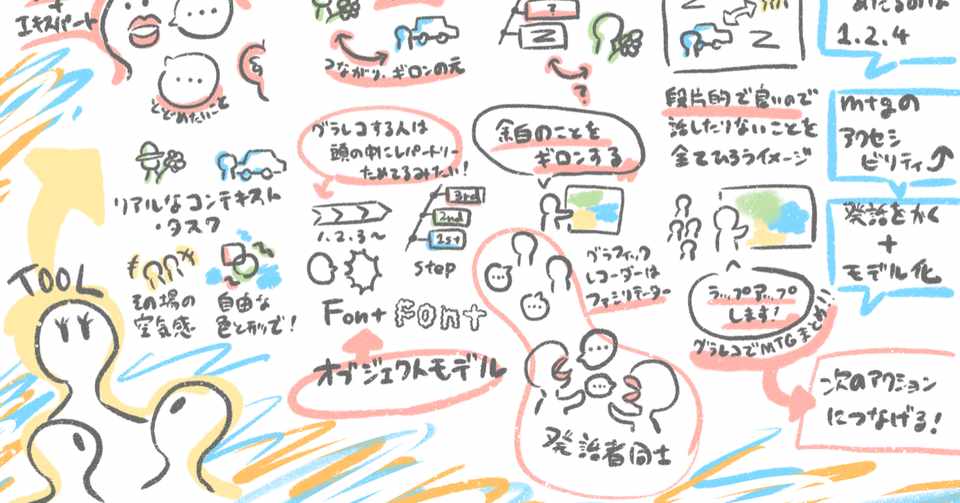 エキスパート
とどめたいこと
リアルなコンテキスト
・タスク
TOOL
その場の
空気感
自由な
色と形で!
つながり、ギロンの元
グラレコする人は
頭の中にレパートリー
ためてるみたい!
1.2.3〜
3rd
2nd
1st
Step
Font Font
オブジェクトモデル
?
Z
?
余白のことを
ギロンする
グラフィック
レコーダーは
ファシリテーター
発話者同士
Z
段片的で良いので
話したりないことを
全てひろうイメージ
ラップアップ
します!
グラレコでMTGまとめ!!
1.2.4
mtgの
アクセシ
ビリティ⤴
発話をかく
+
モデル化
次のアクション
につなげる!